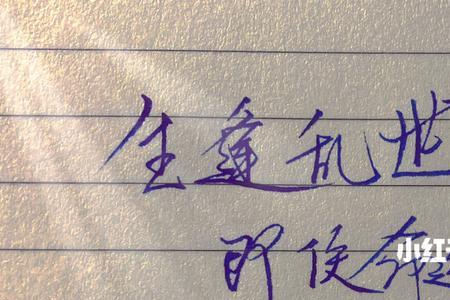 生逢乱世
即使命
小红